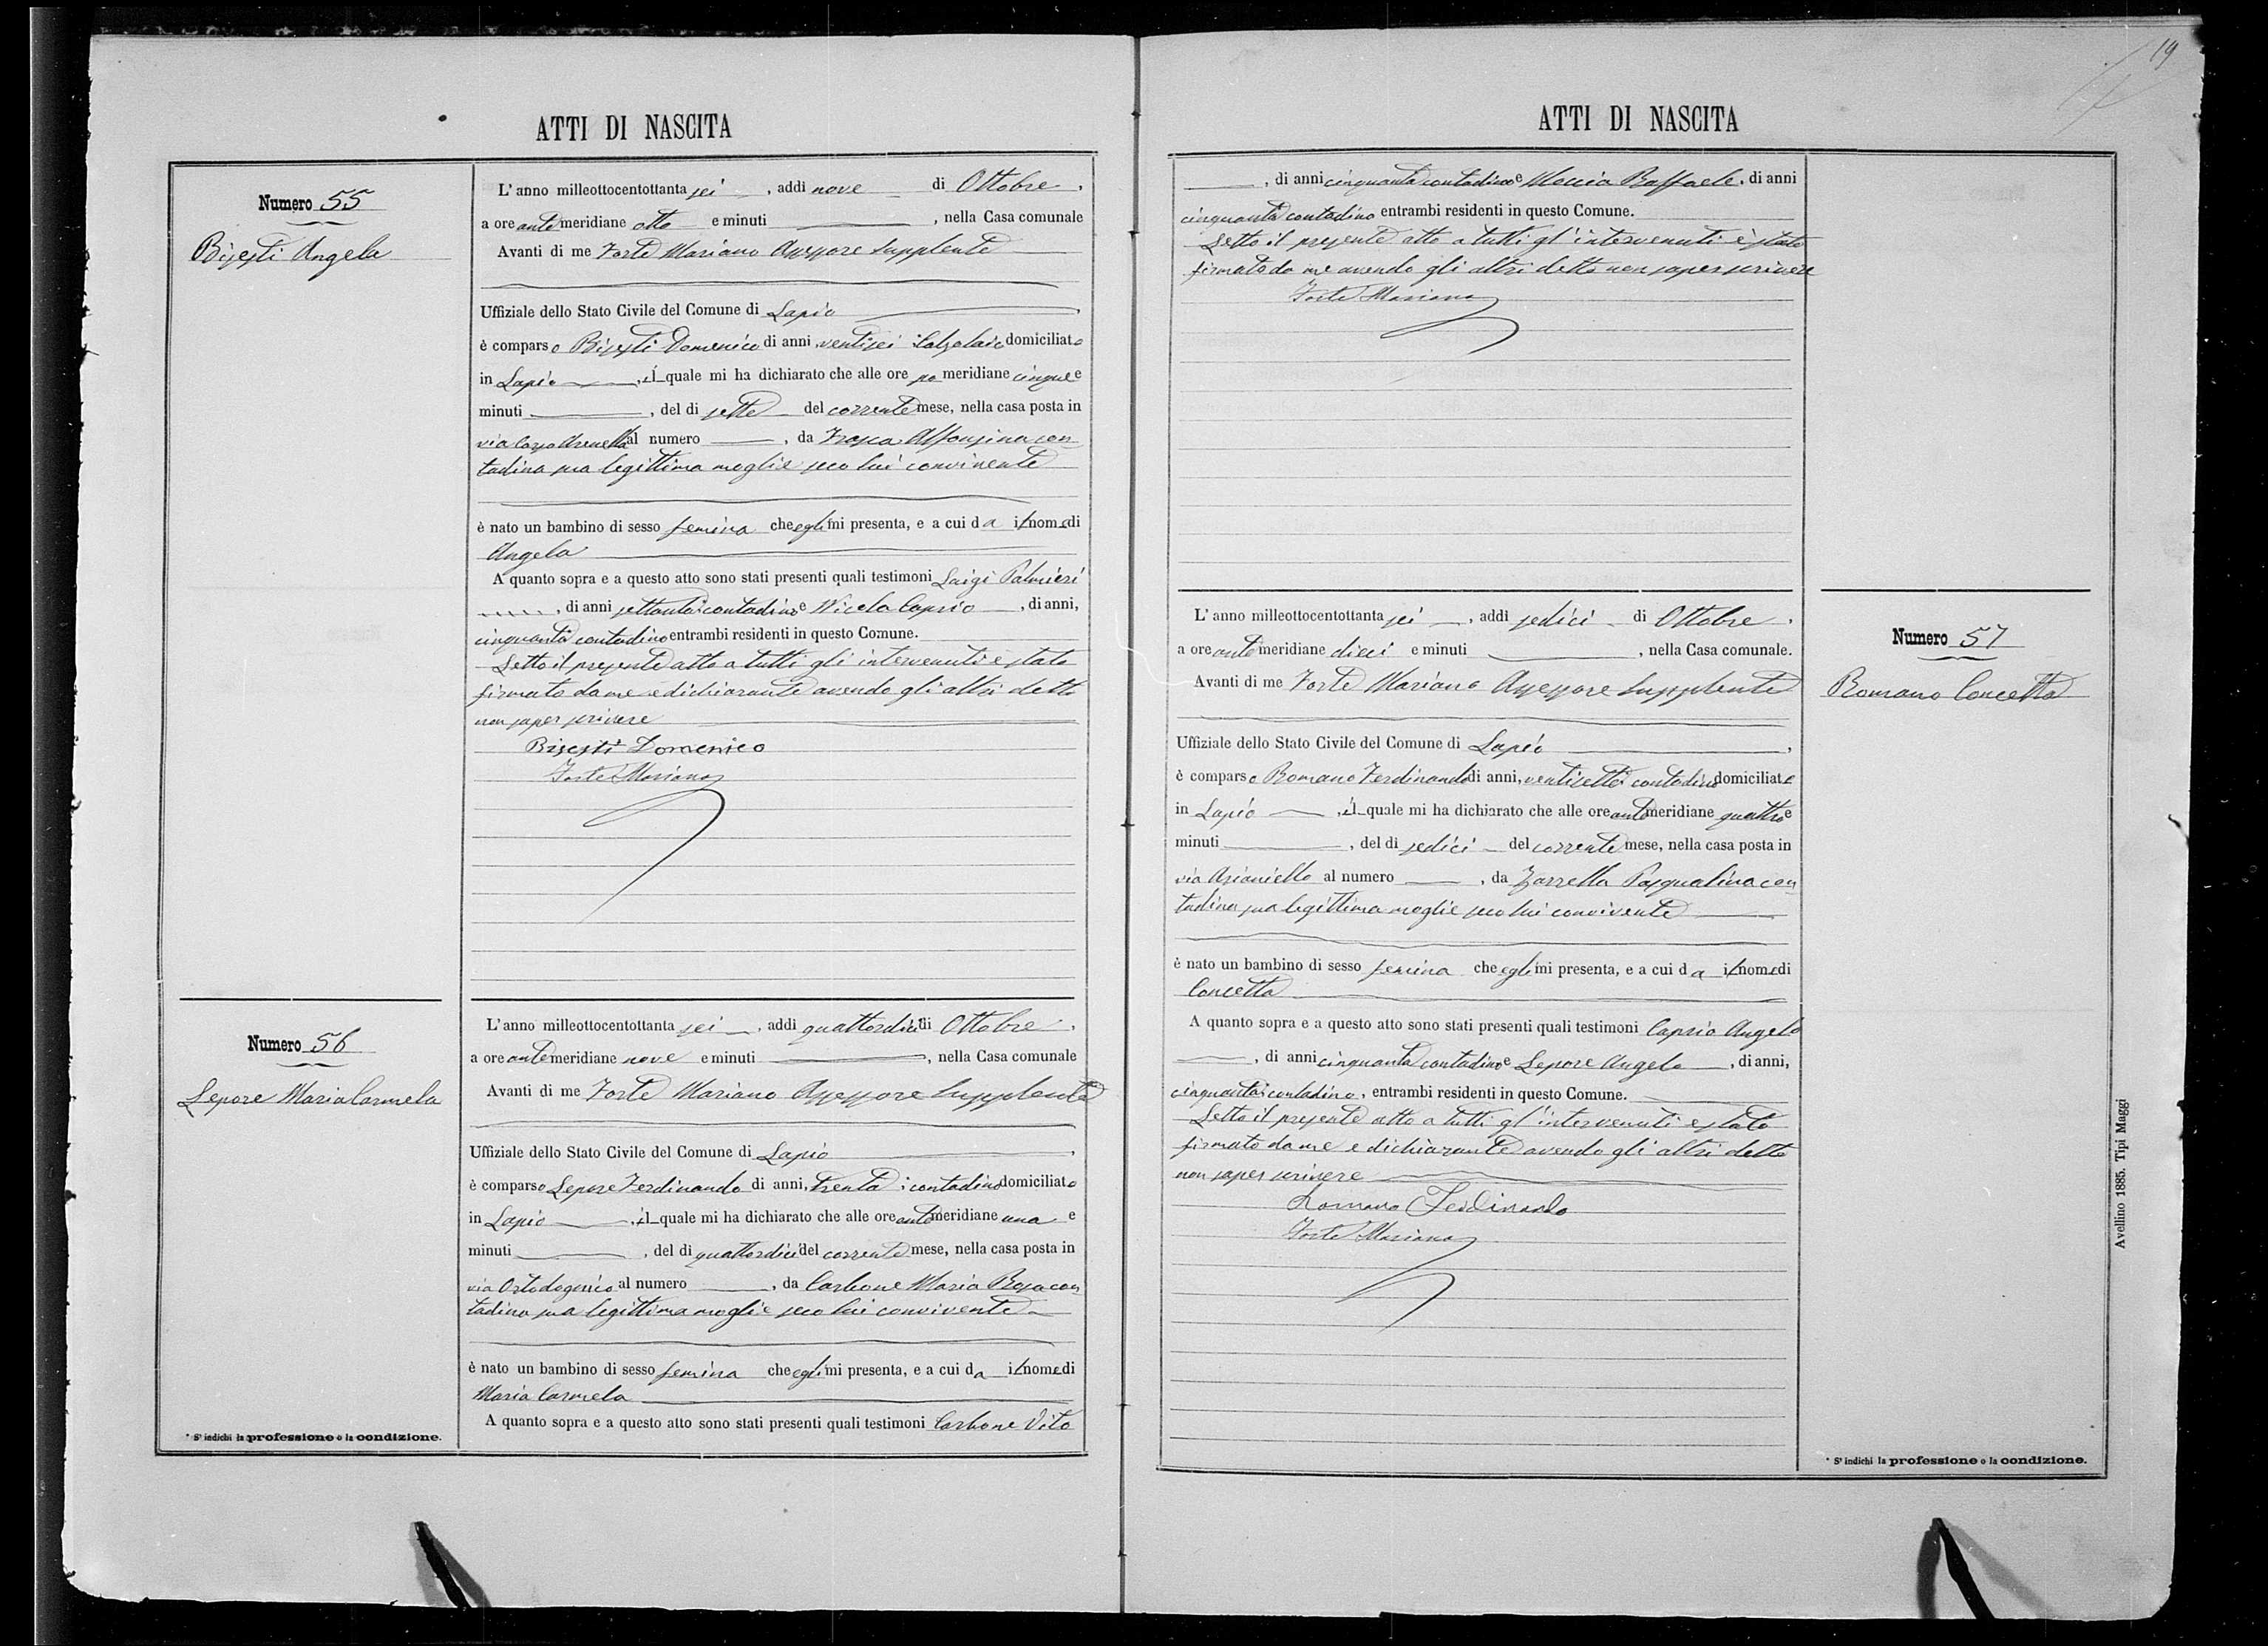 19
ATTI DI NASCITA
Numero 55
Bisesti Angela
L'anno milleottocentottanta sei , addì nove di Ottobre ,
a ore ante meridiane otto e minuti , nella Casa comunale
Avanti di me Forte Mariano Assessore Supplente
Uffiziale dello Stato Civile del Comune di Lapio ,
è comparso Bisesti Domenico di anni, ventisei Calzolaio domiciliato
in Lapio , il quale mi ha dichiarato che alle ore po meridiane cinque e
minuti , del dì sette del corrente mese, nella casa posta in
via Corso al numero , da Frasca Alfonsina con
tadina sua legittima moglie seco lui convivente
è nato un bambino di sesso femina che egli mi presenta, e a cui da il nome di
Angela
A quanto sopra e a questo atto sono stati presenti quali testimoni Luigi Palmieri
, di anni settanta contadino e Nicola Caprio , di anni,
cinquanta contadino entrambi residenti in questo Comune.
Letto il presente atto a tutti gli intervenuti è stato
firmato da me e dichiarante avendo gli altri detto
non saper scrivere
Bisesti Domenico
Forte Mariano
Numero 56
Lepore Maria Carmela
L'anno milleottocentottanta sei , addì quattordici di Ottobre ,
a ore ante meridiane nove e minuti , nella Casa comunale
Avanti di me Forte Mariano Assessore Supplente
Uffiziale dello Stato Civile del Comune di Lapio ,
è comparso Lepore Ferdinando di anni, trenta contadino domiciliato
in Lapio , il quale mi ha dichiarato che alle ore ante meridiane una e
minuti , del dì quattordici del corrente mese, nella casa posta in
via al numero , da Carbone Maria Rosa con
tadina sua legittima moglie seco lui convivente
è nato un bambino di sesso femina che egli mi presenta, e a cui da il nome di
Maria Carmela
A quanto sopra e a questo atto sono stati presenti quali testimoni Carbone Vito
* S'indichi la professione o la condizione.
ATTI DI NASCITA
, di anni cinquanta contadino e Meccia Raffaele , di anni
cinquanta contadino entrambi residenti in questo Comune.
Letto il presente atto a tutti gl'intervenuti è stato
firmato da me avendo gli altri detto non saper scrivere
Forte Mariano
L'anno milleottocentottanta sei , addì sedici di Ottobre ,
a ore ante meridiane dieci e minuti , nella Casa comunale.
Avanti di me Forte Mariano Assessore Supplente
Numero 57
Romano Concetta
Uffiziale dello Stato Civile del Comune di Lapio ,
è comparso Romano Ferdinando di anni, ventisette contadino domiciliato
in Lapio , il quale mi ha dichiarato che alle ore ante meridiane quattro e
minuti , del dì sedici del corrente mese, nella casa posta in
via Arianiello al numero , da Zarrella Pasqualina con
tadina sua legittima moglie seco lui convivente
è nato un bambino di sesso femina che egli mi presenta, e a cui da il nome di
Concetta
A quanto sopra e a questo atto sono stati presenti quali testimoni Caprio Angelo
, di anni cinquanta contadino e Lepore Angelo , di anni,
cinquanta contadino, entrambi residenti in questo Comune.
Letto il presente atto a tutti gl'intervenuti è stato
firmato da me e dichiarante avendo gli altri detto
non saper scrivere
Romano Ferdinando
Forte Mariano
* S'indichi la professione o la condizione.
Avellino 1885. Tipi Maggi